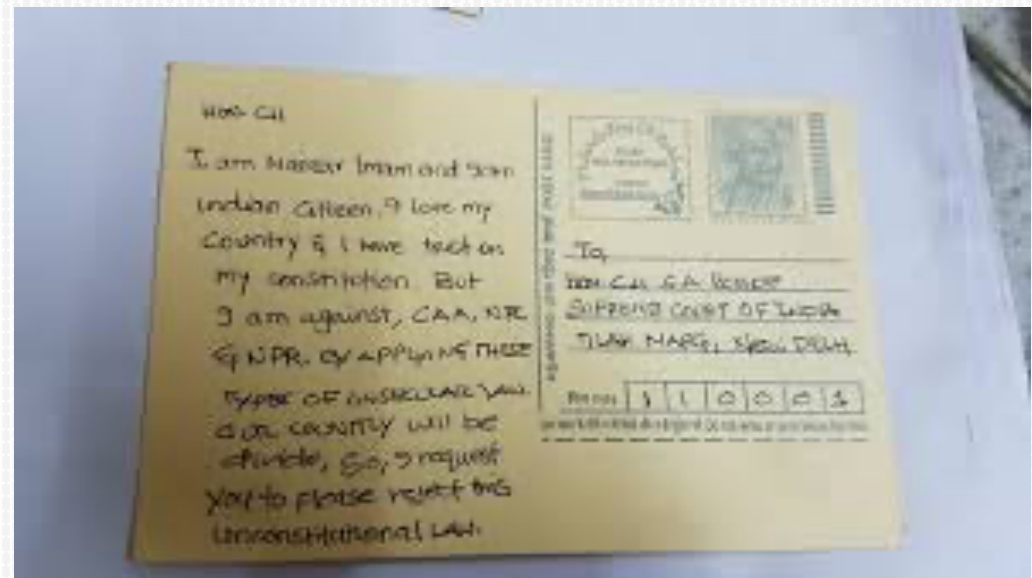 HON. CJI
I am Nassar Imam and I am
indian citizen. I love my
Country & I have trust on
my constitution. But
I am against, CAA, NRC
& NPR. BY APPLYING THESE
TYPES OF UNSECULAR LAW
our country will be
divide, So, I request
you to please reject this
Unconstitutional LAW.
To,
HON CJI S.A. BOBDE
SUPREME COURT OF INDIA
TILAK MARG, New DELHI
110001